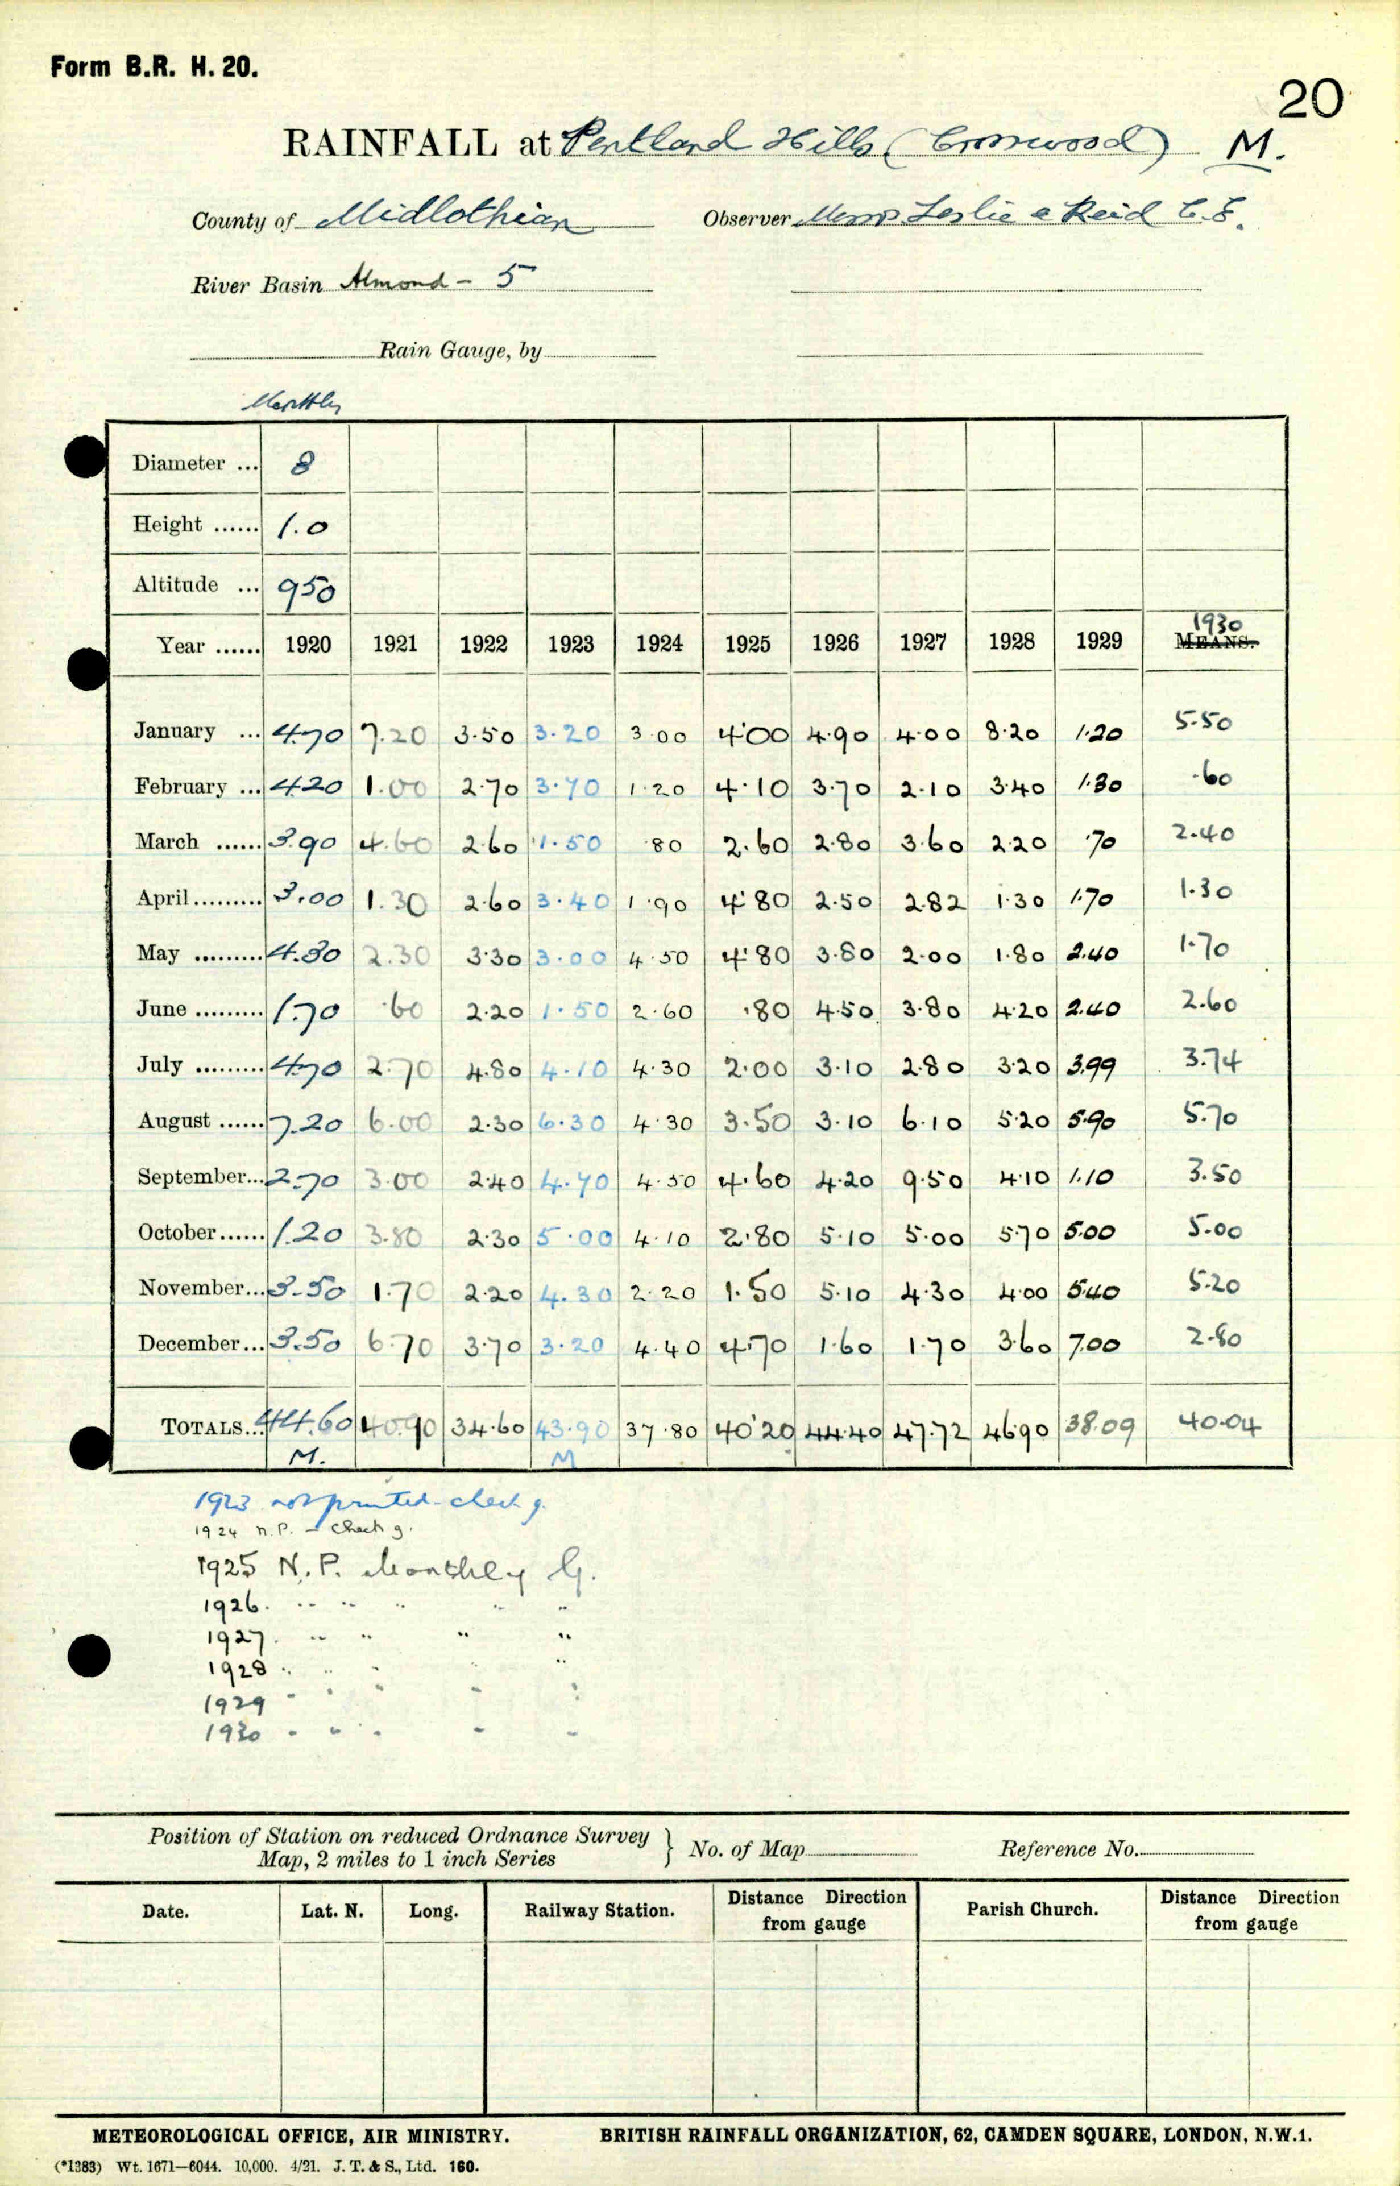 Form B.R. H. 20.
20
RAINFALL at Pentland Hills (Crosswood) M.
County of Midlothian Observer Messrs Leslie & Reid C.E.
River Basin Almond - 5
Rain Gauge, by
Monthly
Diameter ... 8
Height ...... 1.0
Altitude ... 950
1930
Year ...... 1920 1921 1922 1923 1924 1925 1926 1927 1928 1929 MEANS.
January ... 4.70 7.20 3.50 3.20 3.00 4.00 4.90 4.00 8.20 1.20 5.50
February ... 4.20 1.00 2.70 3.70 1.20 4.10 3.70 2.10 3.40 1.30 .60
March ...... 3.90 4.60 2.60 1.50 .80 2.60 2.80 3.60 2.20 .70 2.40
April ......... 3.00 1.30 2.60 3.40 1.90 4.80 2.50 2.82 1.30 1.70 1.30
May ......... 4.30 2.30 3.30 3.00 4.50 4.80 3.80 2.00 1.80 2.40 1.70
June ......... 1.70 .60 2.20 1.50 2.60 .80 4.50 3.80 4.20 2.40 2.60
July ......... 4.70 2.70 4.80 4.10 4.30 2.00 3.10 2.80 3.20 3.99 3.74
August ...... 7.20 6.00 2.30 6.30 4.30 3.50 3.10 6.10 5.20 5.90 5.70
September... 2.70 3.00 2.40 4.70 4.50 4.60 4.20 9.50 4.10 1.10 3.50
October ...... 1.20 3.80 2.30 5.00 4.10 2.80 5.10 5.00 5.70 5.00 5.00
November... 3.50 1.70 2.20 4.30 2.20 1.50 5.10 4.30 4.00 5.40 5.20
December... 3.50 6.70 3.70 3.20 4.40 4.70 1.60 1.70 3.60 7.00 2.80
TOTALS... 44.60 40.90 34.60 43.90 37.80 40.20 44.40 47.72 46.90 38.09 40.04
M. M
1923 not printed - check g.
1924 N.P. - check g.
1925 N.P. Monthly G.
1926 .. .. .. .. ..
1927 .. .. .. ..
1928 .. .. .. .. ..
1929 .. .. .. .. ..
1930 .. .. .. .. ..
Position of Station on reduced Ordnance Survey
Map, 2 miles to 1 inch Series } No. of Map Reference No.
Date. Lat. N. Long. Railway Station. Distance Direction from gauge Parish Church. Distance Direction from gauge
METEOROLOGICAL OFFICE, AIR MINISTRY. BRITISH RAINFALL ORGANIZATION, 62, CAMDEN SQUARE, LONDON, N.W.1.
(*1383) Wt. 1671—6044. 10,000. 4/21. J. T. & S., Ltd. 160.